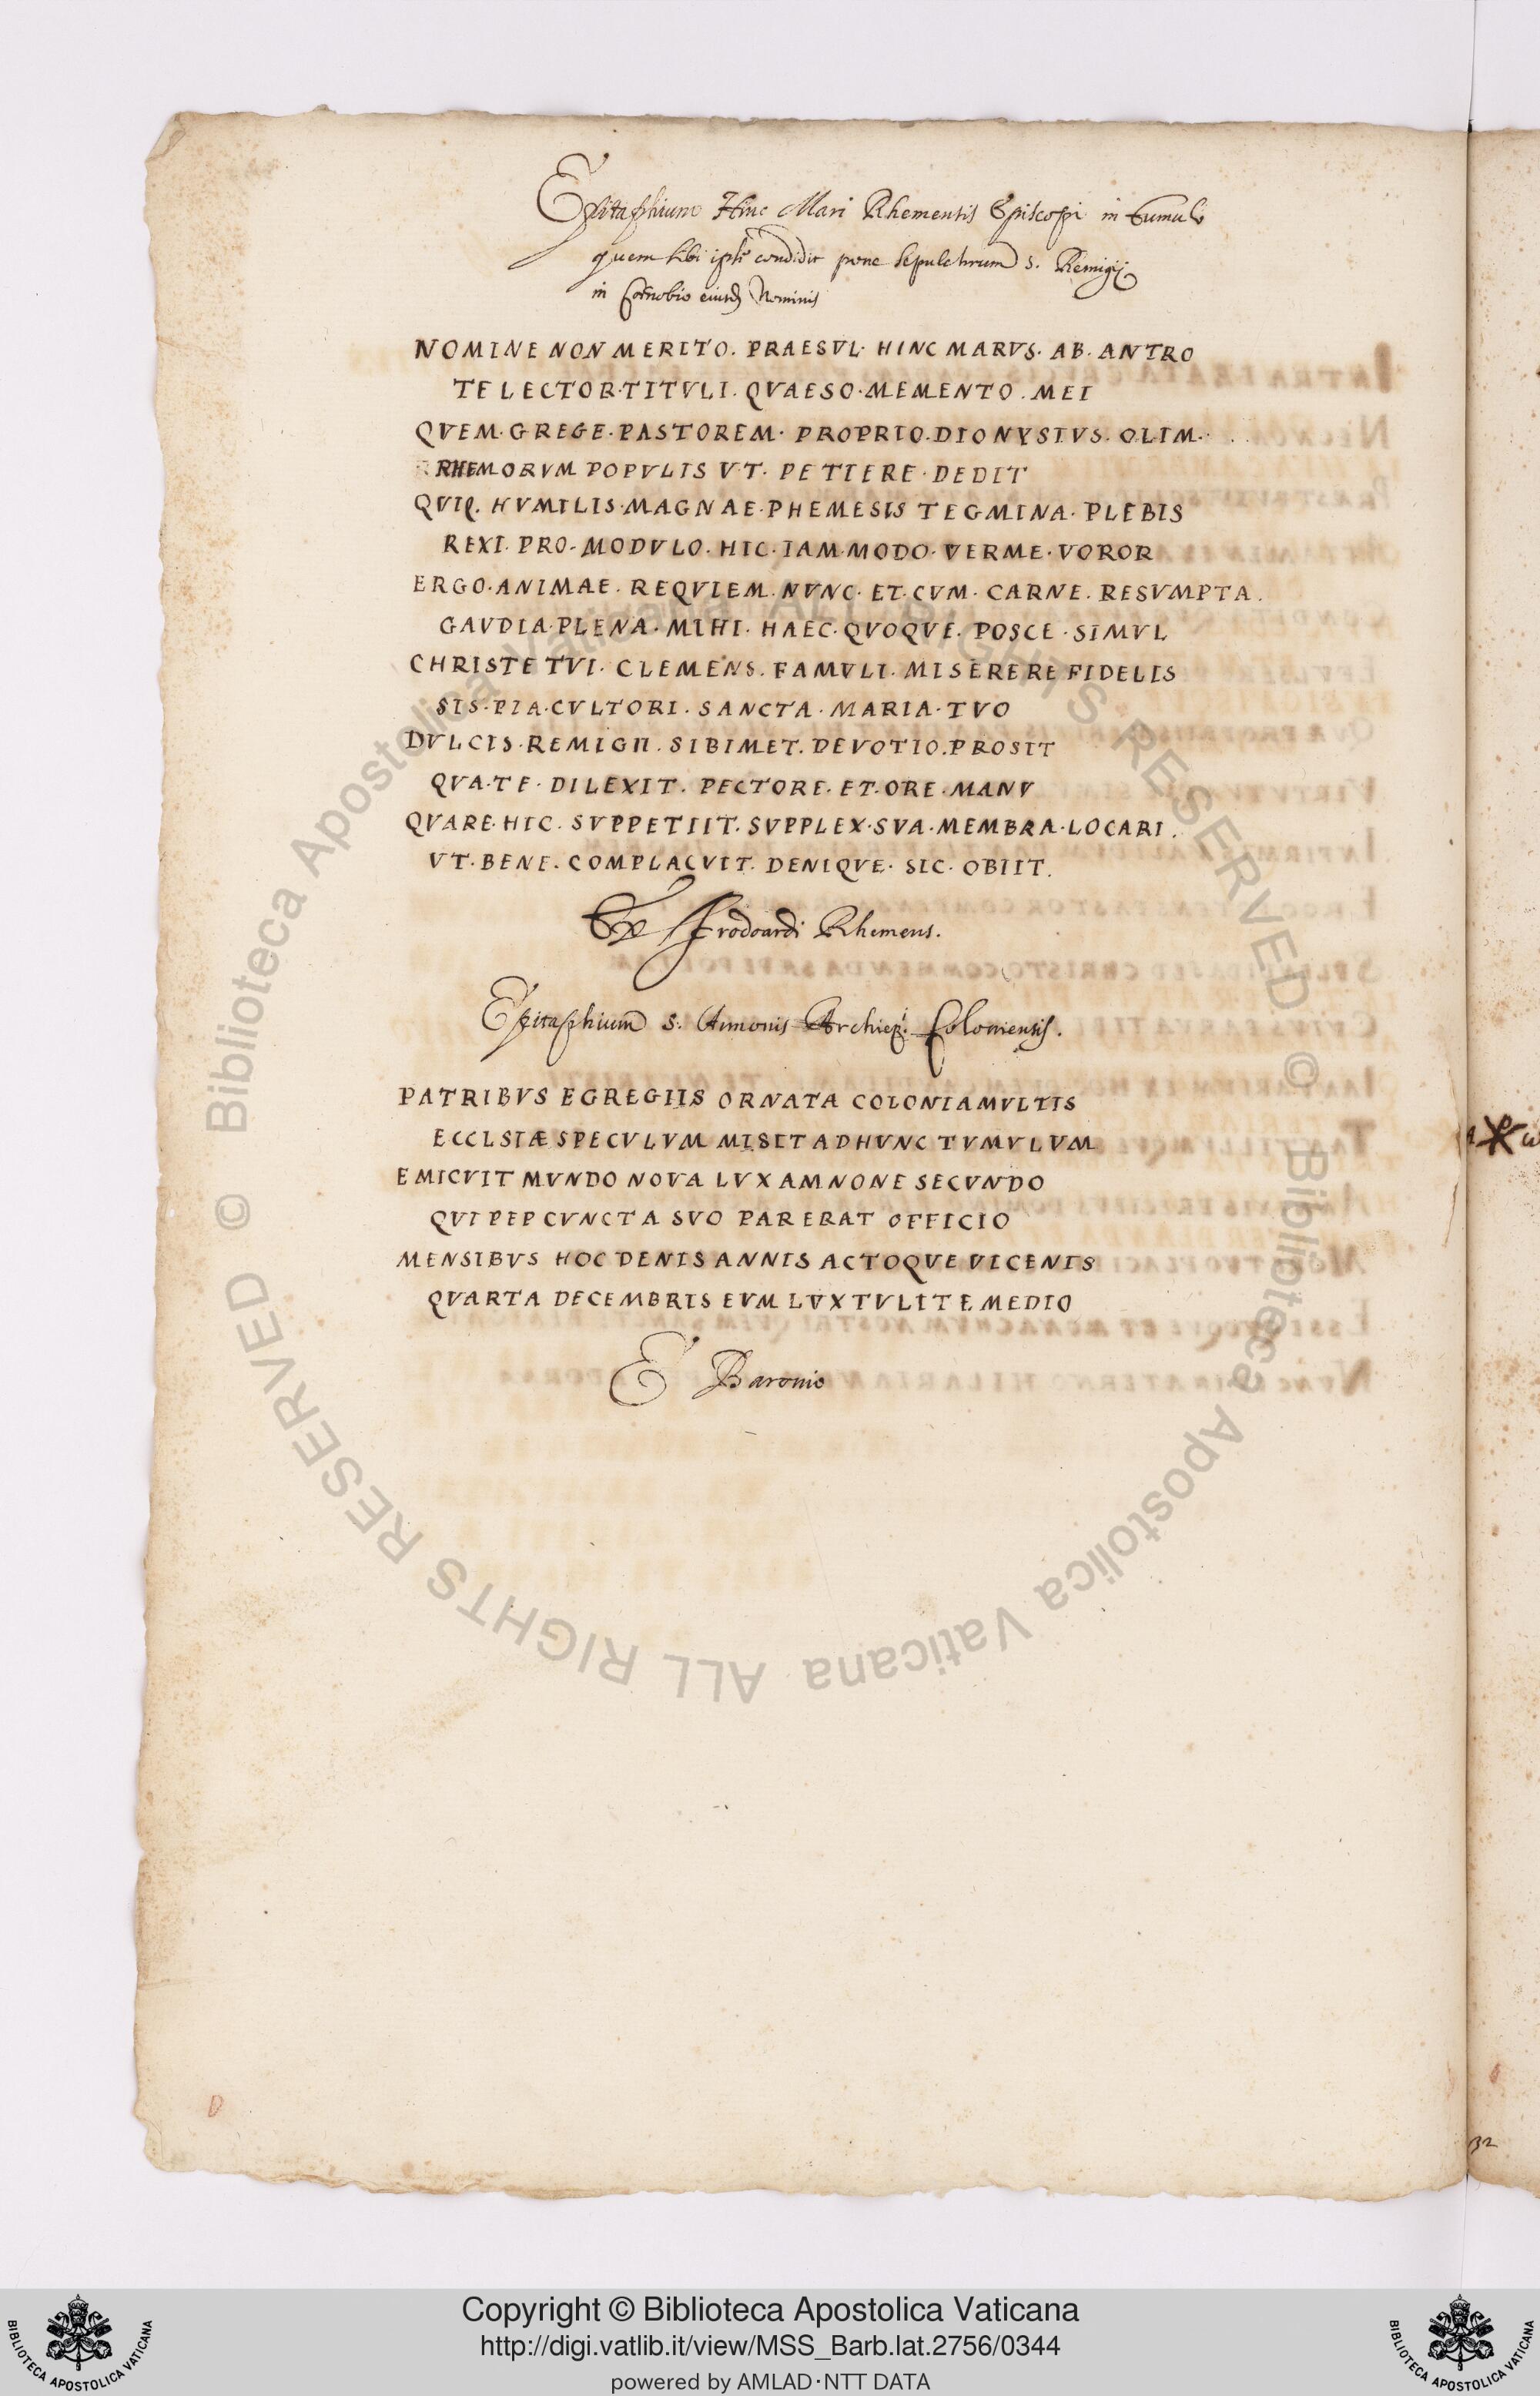 Epitaphium Hinc Mari Rhementis Episcopi in tumulo
quem sibi ipse condidit pone sepulchrum s. Remigij
in Coenobio eiusd Nominis
NOMINE NON MERITO. PRAESVL. HINC MARVS. AB. ANTRO
TE LECTOR. TITVLI. QVAESO. MEMENTO. MEI
QVEM. GREGE. PASTOREM. PROPRIO. DIONYSIVS. OLIM.
RHEMORVM POPVLIS VT. PETIERE. DEDIT
QVIQ. HVMILIS. MAGNAE. PHEMESIS TEGMINA. PLEBIS
REXI. PRO. MODVLO. HIC. IAM. MODO. VERME. VOROR
ERGO. ANIMAE. REQVIEM. NVNC. ET. CVM. CARNE. RESVMPTA.
GAVDIA. PLENA. MIHI. HAEC. QVOQVE. POSCE. SIMVL
CHRISTE TVI. CLEMENS. FAMVLI. MISERERE FIDELIS
SIS. PIA. CVLTORI. SANCTA. MARIA. TVO
DVLCIS. REMIGII. SIBIMET. DEVOTIO. PROSIT
QVA. TE. DILEXIT. PECTORE. ET. ORE. MANV
QVARE. HIC. SVPPETIIT. SVPPLEX. SVA. MEMBRA. LOCARI.
VT. BENE. COMPLACVIT. DENIQVE. SIC. OBIIT.
Ex Frodoardi Rhemens.
Epitaphium S. Annonis Archiep. Coloniensis.
PATRIBVS EGREGIIS ORNATA COLONIA MVLTIS
ECCLSIÆ SPECVLVM MISIT AD HVNC TVMVLVM
EMICVIT MVNDO NOVA LVX AMNONE SECVNDO
QVI PEP CVNCTA SVO PARERAT OFFICIO
MENSIBVS HOC DENIS ANNIS ACTOQVE VICENIS
QVARTA DECEMBRIS EVM LVX TVLIT E MEDIO
E Baronio
32
Copyright © Biblioteca Apostolica Vaticana
http://digi.vatlib.it/view/MSS_Barb.lat.2756/0344
powered by AMLAD·NTT DATA
BIBLIOTECA APOSTOLICA VATICANA
BIBLIOTECA APOSTOLICA VATICANA
© Biblioteca Apostolica Vaticana ALL RIGHTS RESERVED
© Biblioteca Apostolica Vaticana ALL RIGHTS RESERVED